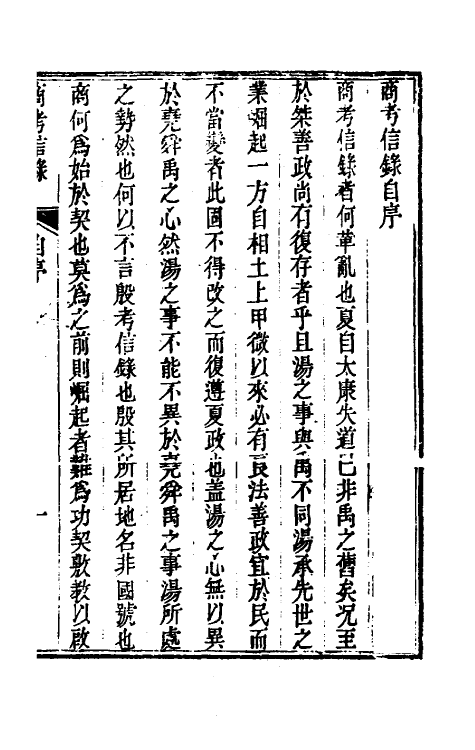 商考信錄自序
商考信錄者何革亂也夏自太康失道已非禹之舊矣況至
於桀善政尚有復存者乎且湯之事與禹不同湯承先世之
業崛起一方自相土上甲微以來必有良法善政宜於民而
不當變者此固不得改之而復遵夏政也蓋湯之心無以異
於堯舜禹之心然湯之事不能不異於堯舜禹之事湯所處
之勢然也何以不言殷考信錄也殷其所居地名非國號也
商何爲始於契也莫爲之前則崛起者難爲功契敷教以啟
商考信錄
自序
一